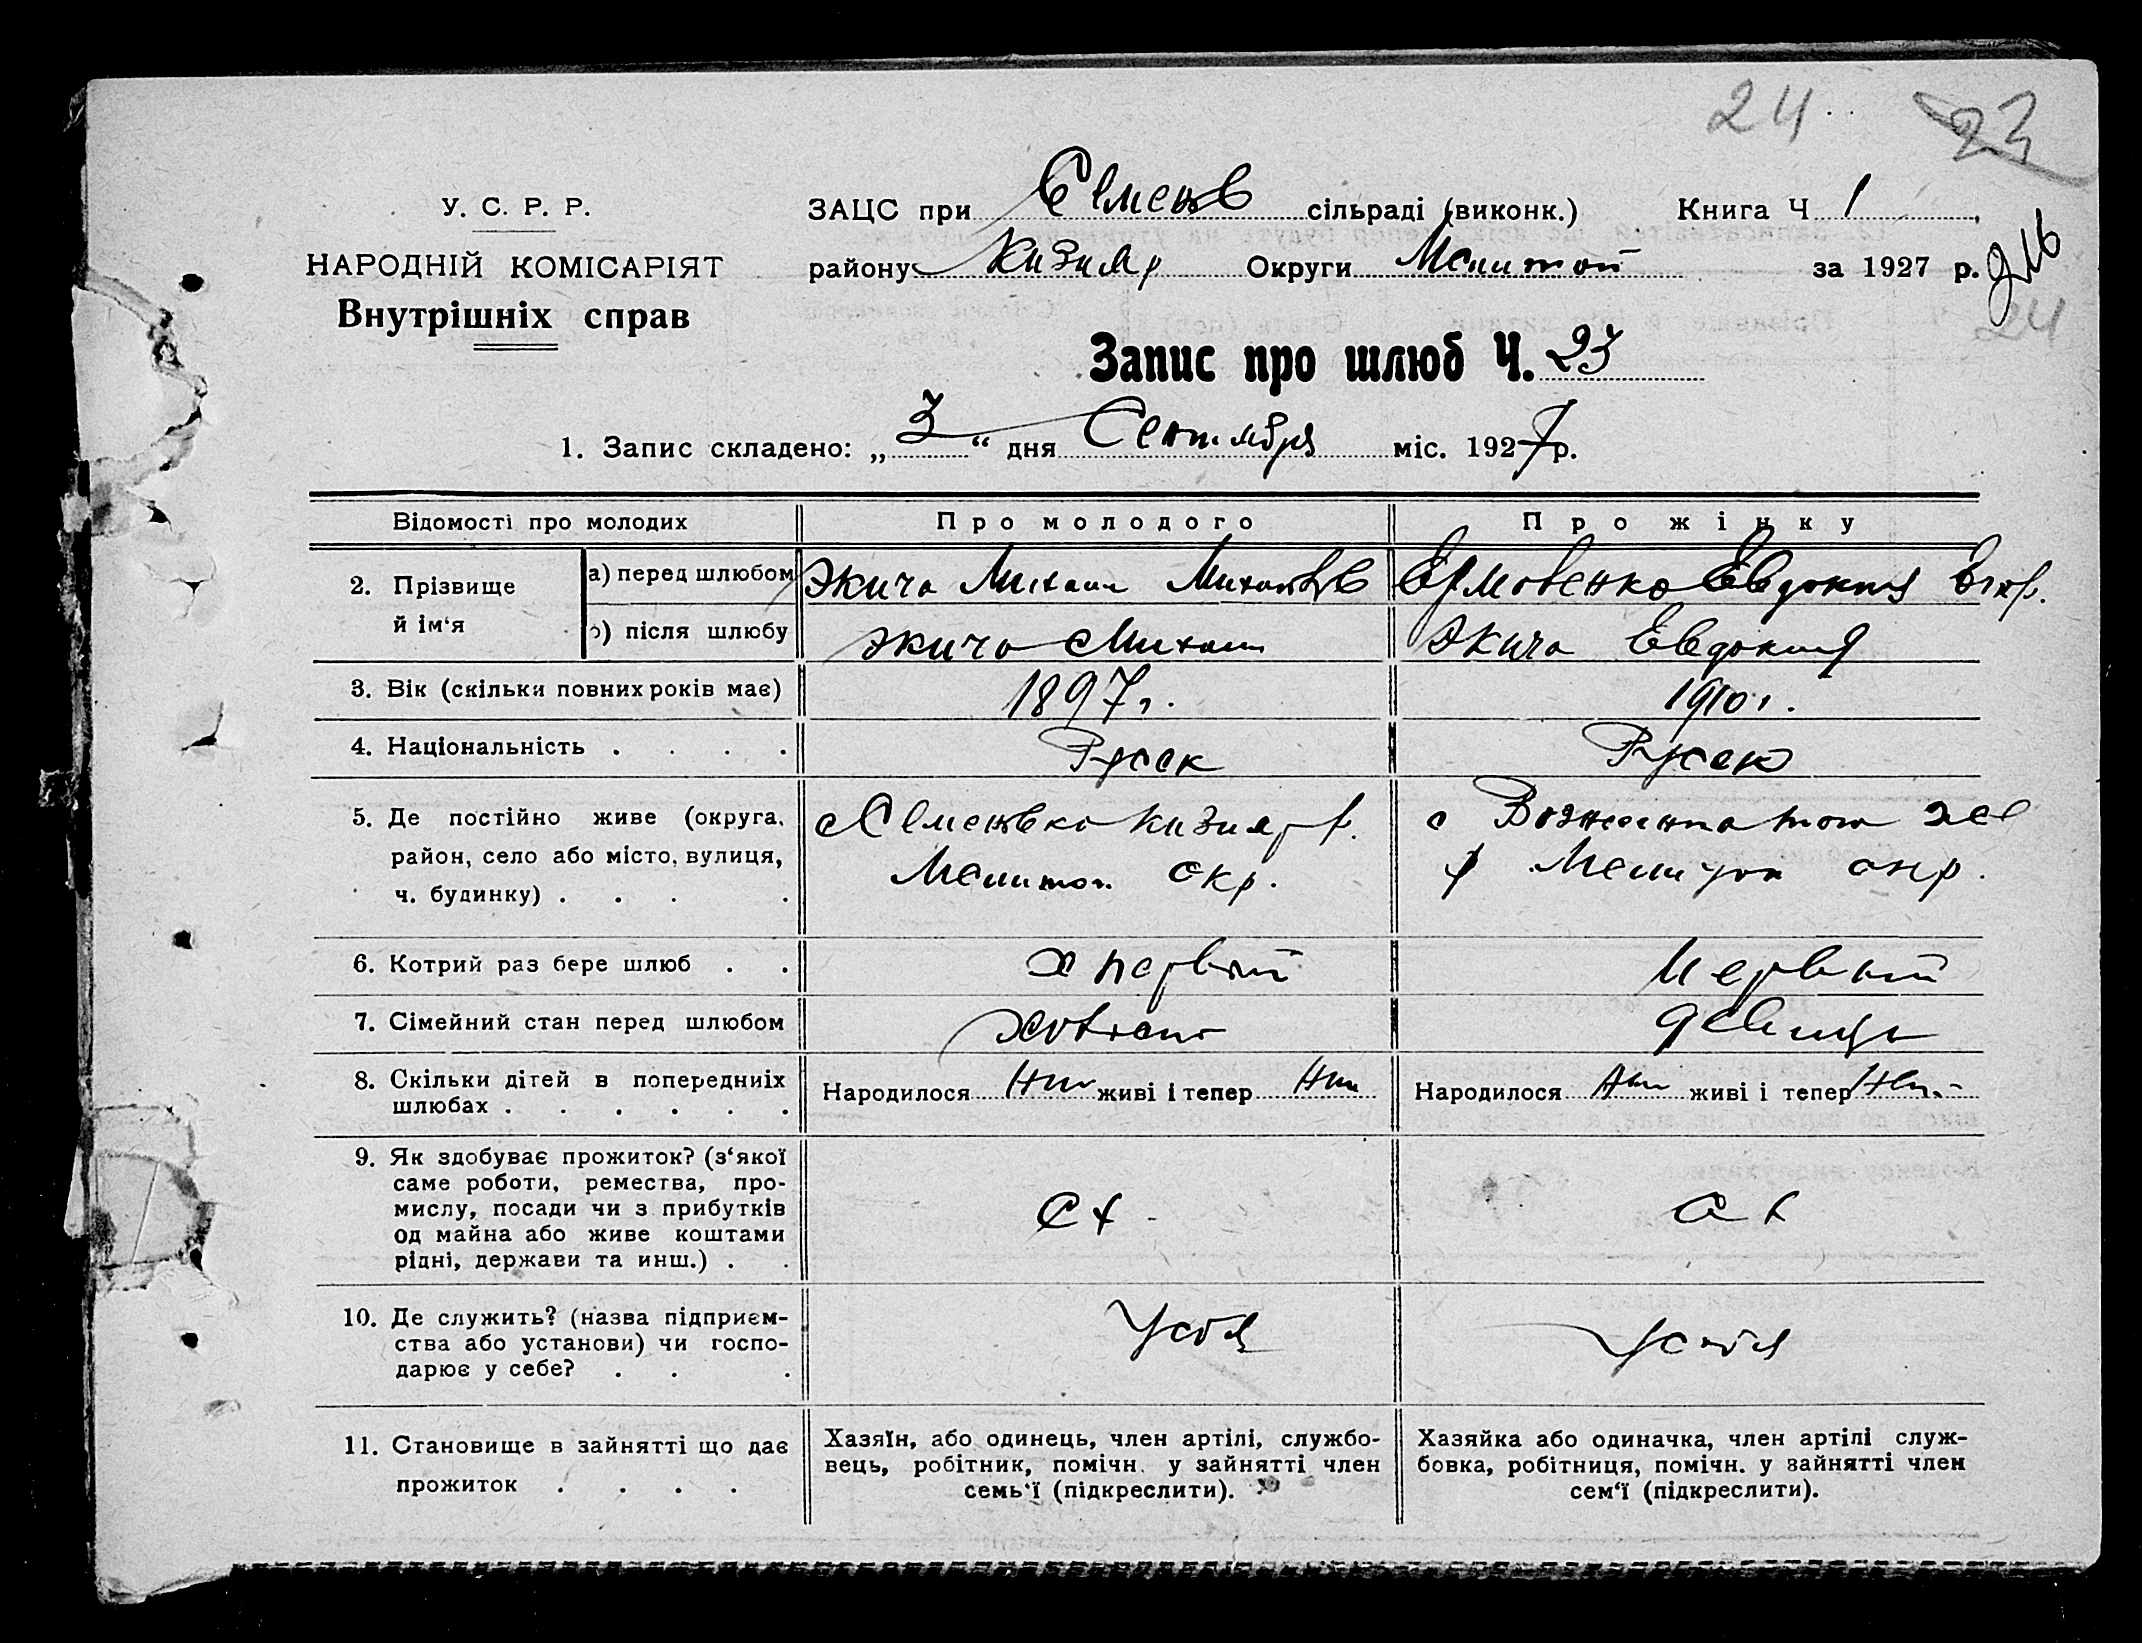 24 23
У. С. Р. Р.
НАРОДНІЙ КОМІСАРІЯТ
Внутрішніх справ
ЗАЦС при Семенв сільраді (виконк.) Книга Ч 1
району Кизияр Округи Мелитоп за 1927 р.
24
Запис про шлюб Ч. 23
1. Запис складено: „3“ дня Сентября міс. 1927 р.
Відомості про молодих Про молодого Про жінку
2. Прізвище й ім‘я
а) перед шлюбом Экича Михаил Ермовенко Евдокия
б) після шлюбу Экича Михаил Экича Евдокия
3. Вік (скільки повних років має) 1897 г. 1910 г.
4. Національність . . . . Русск Русск
5. Де постійно живе (округа, с Семеновка Кизияр р. с Вознесенка того же
район, село або місто, вулиця, Мелитоп. окр. р Мелитоп окр.
ч. будинку) . . . .
6. Котрий раз бере шлюб . . первый Первый
7. Сімейний стан перед шлюбом холост девица
8. Скільки дітей в попередниіх Народилося Нет живі і тепер Нет Народилося Нет живі і тепер Нет
шлюбах . . . . . .
9. Як здобуває прожиток? (з‘якої
саме роботи, ремества, про-
мислу, посади чи з прибутків Сх Сх
од майна або живе коштами
рідні, держави та инш.) . .
10. Де служить? (назва підприєм- У себя У себя
ства або установи) чи госпо-
дарює у себе? . . .
11. Становище в зайнятті що дає
прожиток . . . .
Хазяїн, або одинець, член артілі, службо-
вець, робітник, помічн. у зайнятті член
семь‘ї (підкреслити).
Хазяйка або одиначка, член артілі служ-
бовка, робітниця, помічн. у зайнятті член
сем‘ї (підкреслити).